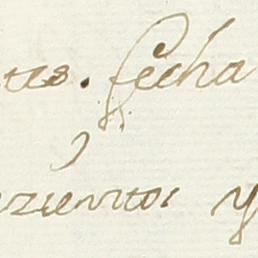 tes. fecha
zientos y